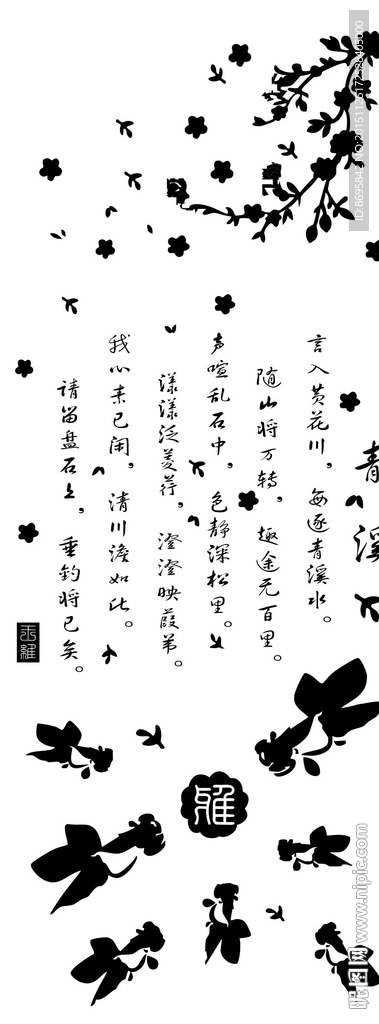 青溪
言入黄花川，每逐青溪水。
随山将万转，趣途无百里。
声喧乱石中，色静深松里。
漾漾泛菱荇，澄澄映葭苇。
我心素已闲，清川澹如此。
请留盘石上，垂钓将已矣。
王维
雅
昵图网 www.nipic.com